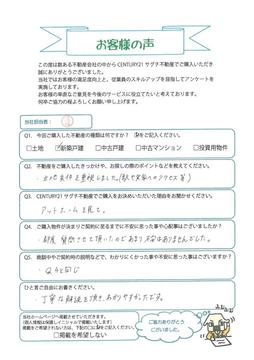 お客様の声
この度は数ある不動産会社の中からCENTURY21サグチ不動産でご購入いただき
誠にありがとうございました。
当社ではお客様の満足度向上と、従業員のスキルアップを目指してアンケートを
実施しております。
お客様の率直なご意見を今後のサービスに役立てたいと考えております。
何卒ご協力の程よろしくお願い申し上げます。
当社担当者:
Q1. 今回ご購入した不動産の種類は何ですか? ☑をご記入ください。
□土地 ☑新築戸建 □中古戸建 □中古マンション □投資用物件
Q2. 不動産をご購入したきっかけや、お探しの際のポイントなどを教えてください。
土地条件を重視しました。
Q3. CENTURY21サグチ不動産でご購入をお決めいただいた理由をお聞かせください。
アットホームを見て。
Q4. ご購入物件が決まりご契約に至るまでに不安に思った事や心配事はございましたか?
都度質問させて頂いたのであまり不安はありませんでした。
Q5. 商談中や契約時の説明などで、わかりにくかった事や不安に思った事はございますか?
Q4と同じ
ひと言ご自由にお書きください。
丁寧な解説を頂き、わかりやすかったです。
当社ホームページへ掲載させていただきます。
(個人情報は保護しイニシャルで掲載いたします)
掲載をご希望されない方は、下記の□に☑をご記入ください。
□掲載を希望しない
ご協力ありがとう
ございました。